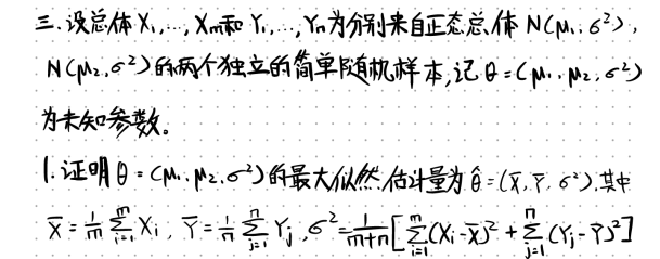 三.设总体X₁,…,Xm和Y₁,…,Yn为分别来自正态总体N(μ₁,σ²),
N(μ₂,σ²)的两个独立的简单随机样本,记θ=(μ₁,μ₂,σ²)
为未知参数。
1.证明θ=(μ₁,μ₂,σ²)的最大似然估计量为θ̂=(X̄,Ȳ,σ²),其中
X̄=1/m ∑_{i=1}^{m} Xi, Ȳ=1/n ∑_{j=1}^{n} Yj, σ²=1/(m+n)[∑_{i=1}^{m}(Xi-X̄)²+∑_{j=1}^{n}(Yj-Ȳ)²]